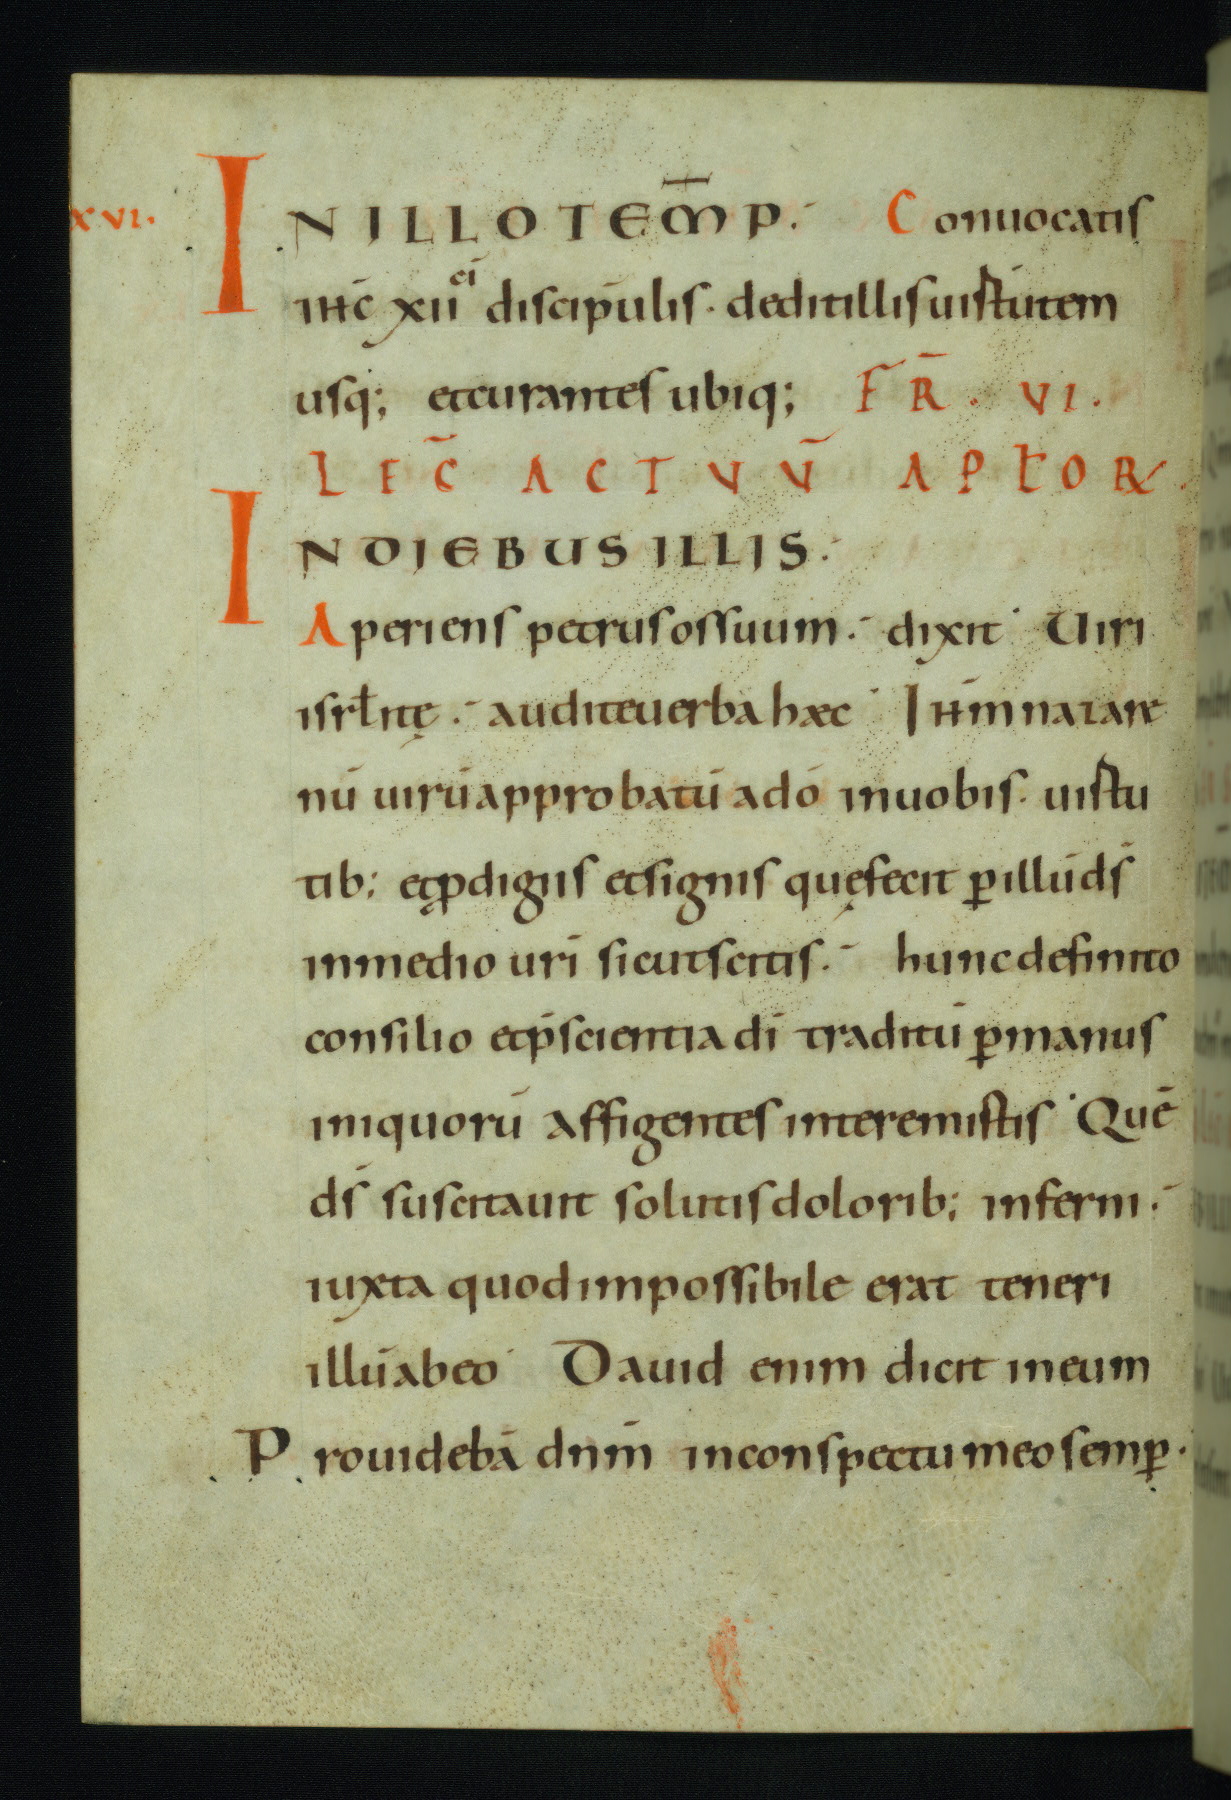 XVI.
IN ILLO TEM̅P. Conuocatis
iħc xii^ci discipulis. dedit illis uirtutem
usq; et curantes ubiq; F R̅. VI.
LEC̅ ACTUU̅ APŁORꝝ.
IN DIEBUS ILLIS.
Aperiens petrus os suum. dixit Uiri
isrłitę. audite uerba haec Iħm̅ nazare
nū uirū approbatū a dō in uobis. uirtu
tib; et ꝓdigiis et signis quę fecit ꝑ illū ds̄
in medio uri̅ sicut scitis. hunc definito
consilio et p̄scientia di̅ traditū ꝑ manus
iniquorū affigentes interemistis Quē
ds̄ suscitauit solutis dolorib; inferni.
iuxta quod impossibile erat teneri
illū ab eo Dauid enim dicit in eum
Prouidebā dnm̅ in conspectu meo semꝑ.